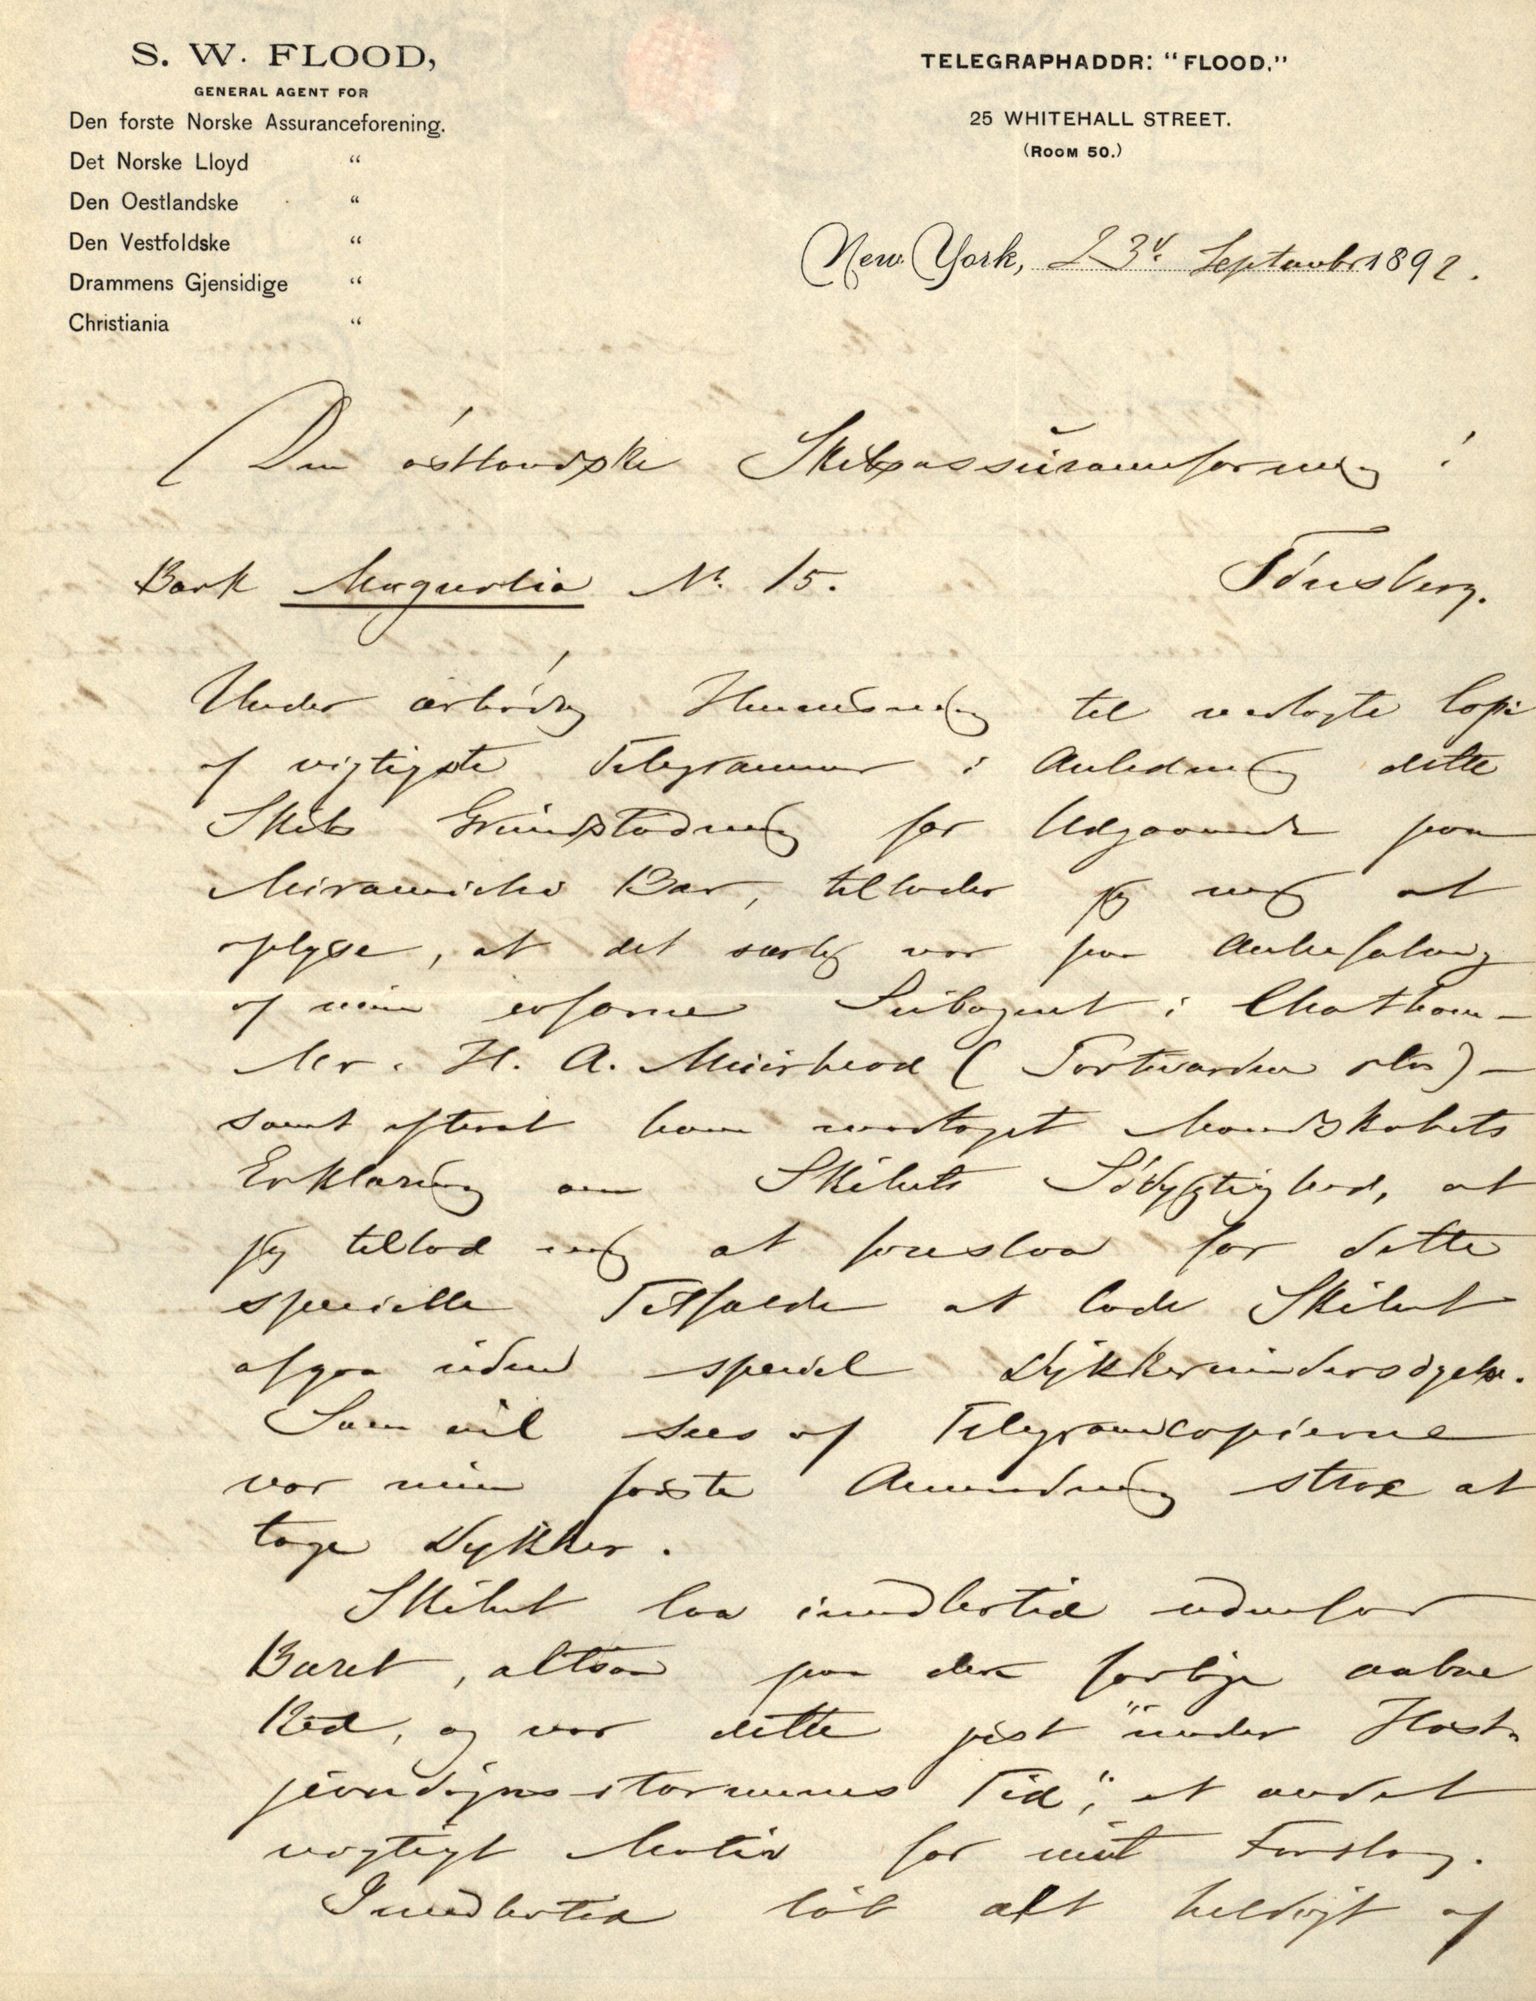 S. W. FLOOD,
GENERAL AGENT FOR
Den forste Norske Assuranceforening.
Det Norske Lloyd "
Den Oestlandske "
Den Vestfoldske "
Drammens Gjensidige "
Christiania "
TELEGRAPHADDR: "FLOOD."
25 WHITEHALL STREET.
(ROOM 50.)
New York, 23d. September 1892.
Den östlandske Skibsassuranceforening i
Tönsberg.
Bark Magnolia No. 15.
Under ærbödig Henvisning til vedlagte Copi
af vigtigste Telegrammer i Anledning dette
Skibs Grundstödning for Udgaaende paa
Miramichi Bar, tillader jeg mig at
oplyse, at det særlig var paa Anbefaling
af min erfarne Subagent i Chatham –
Mr. H. A. Muirhead ( Portwarden ) –
samt efterat have modtaget Mandskabets
Erklæring om Skibets Södygtighed, at
jeg tillod mig at foreslaa for dette
specielle Tilfælde at lade Skibet
afgaa uden speciel Dykkerundersögelse.
Som vil sees af Telegramcopierne
var min förste Anvendning strax at
tage Dykker.
Skibet laa imidlertid udenfor
Baret, altsaa paa den farlige aabne
Red, og var dette just "under Höst-
jevndögnsstormenes Tid"; et andet
vigtigt Motiv for mit Forslag.
Imidlertid löb alt heldigt af